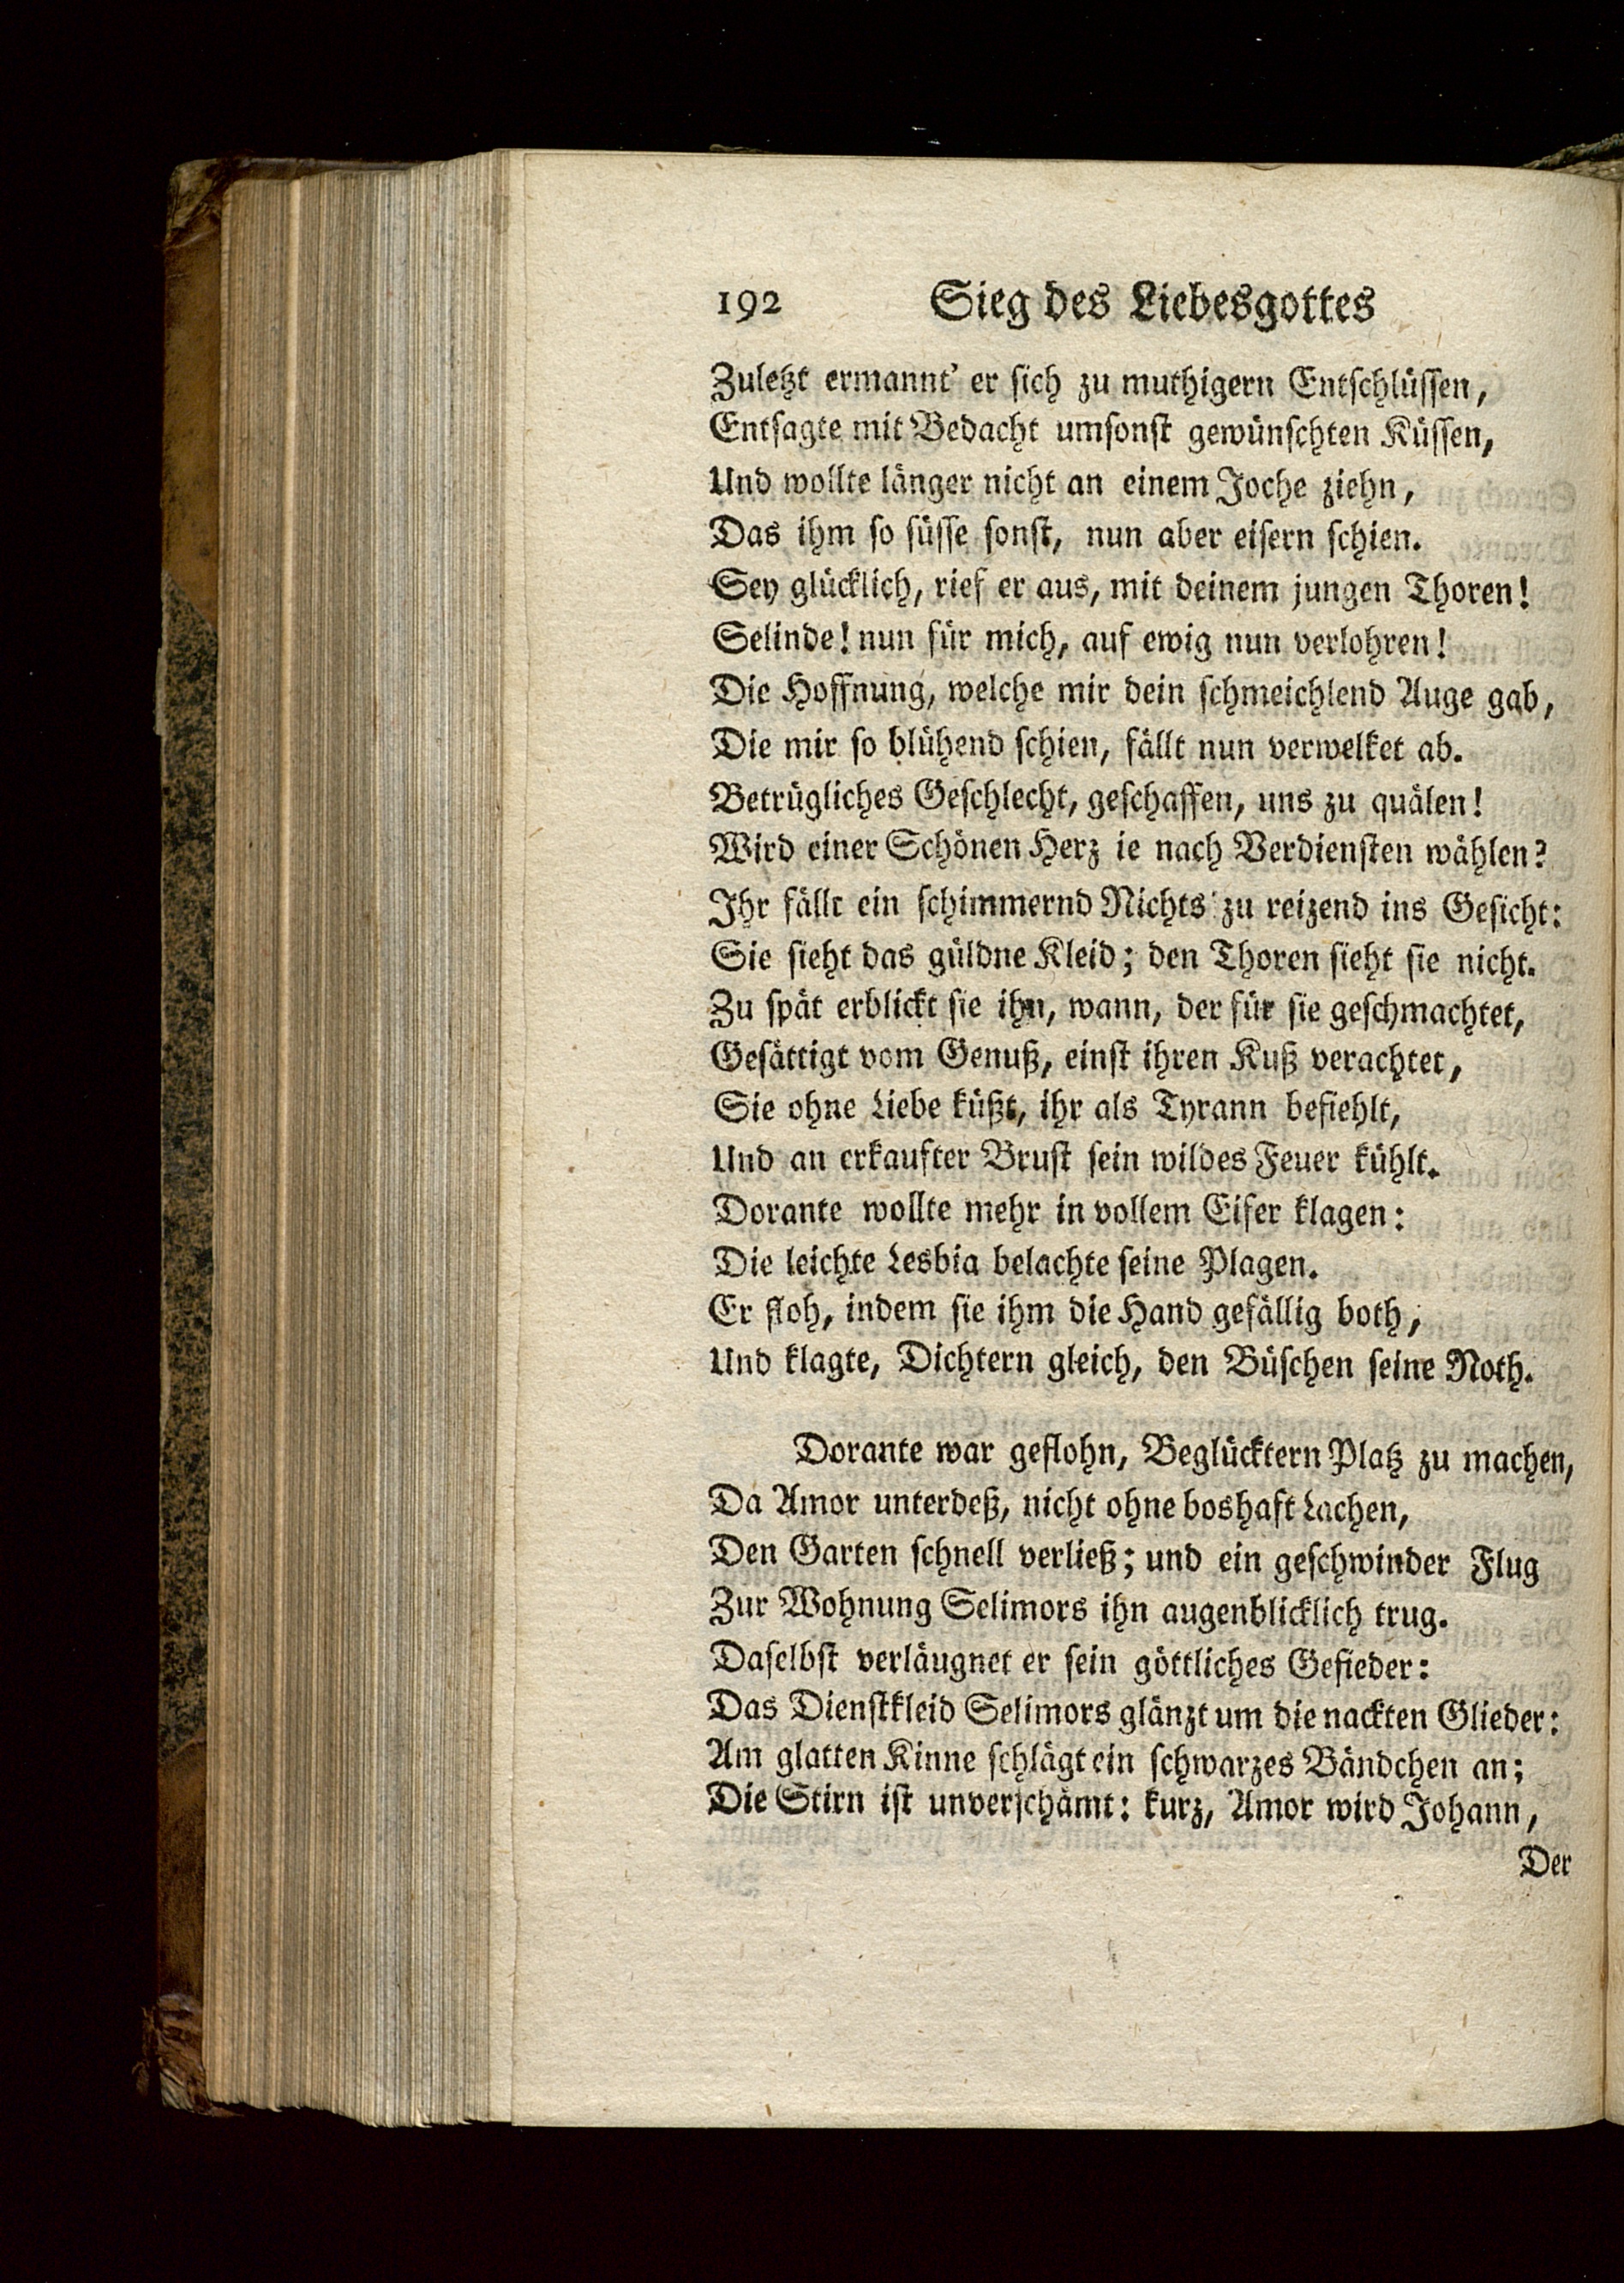 192 Sieg des Liebesgottes
Zuletzt ermannt' er sich zu muthigern Entschlüssen,
Entsagte mit Bedacht umsonst gewünschten Küssen,
Und wollte länger nicht an einem Joche ziehn,
Das ihm so süsse sonst, nun aber eisern schien.
Sey glücklich, rief er aus, mit deinem jungen Thoren!
Selinde! nun für mich, auf ewig nun verlohren!
Die Hoffnung, welche mir dein schmeichlend Auge gab,
Die mir so blühend schien, fällt nun verwelket ab.
Betrügliches Geschlecht, geschaffen, uns zu quälen!
Wird einer Schönen Herz ie nach Verdiensten wählen?
Ihr fällt ein schimmernd Nichts zu reizend ins Gesicht:
Sie sieht das güldne Kleid; den Thoren sieht sie nicht.
Zu spät erblickt sie ihn, wann, der für sie geschmachtet,
Gesättigt vom Genuß, einst ihren Kuß verachtet,
Sie ohne Liebe küßt, ihr als Tyrann befiehlt,
Und an erkaufter Brust sein wildes Feuer kühlt.
Dorante wollte mehr in vollem Eifer klagen:
Die leichte Lesbia belachte seine Plagen.
Er floh, indem sie ihm die Hand gefällig both,
Und klagte, Dichtern gleich, den Büschen seine Noth.
Dorante war geflohn, Beglücktern Platz zu machen,
Da Amor unterdeß, nicht ohne boshaft Lachen,
Den Garten schnell verließ; und ein geschwinder Flug
Zur Wohnung Selimors ihn augenblicklich trug.
Daselbst verläugnet er sein göttliches Gefieder:
Das Dienstkleid Selimors glänzt um die nackten Glieder:
Am glatten Kinne schlägt ein schwarzes Bändchen an;
Die Stirn ist unverschämt: kurz, Amor wird Johann,
Der